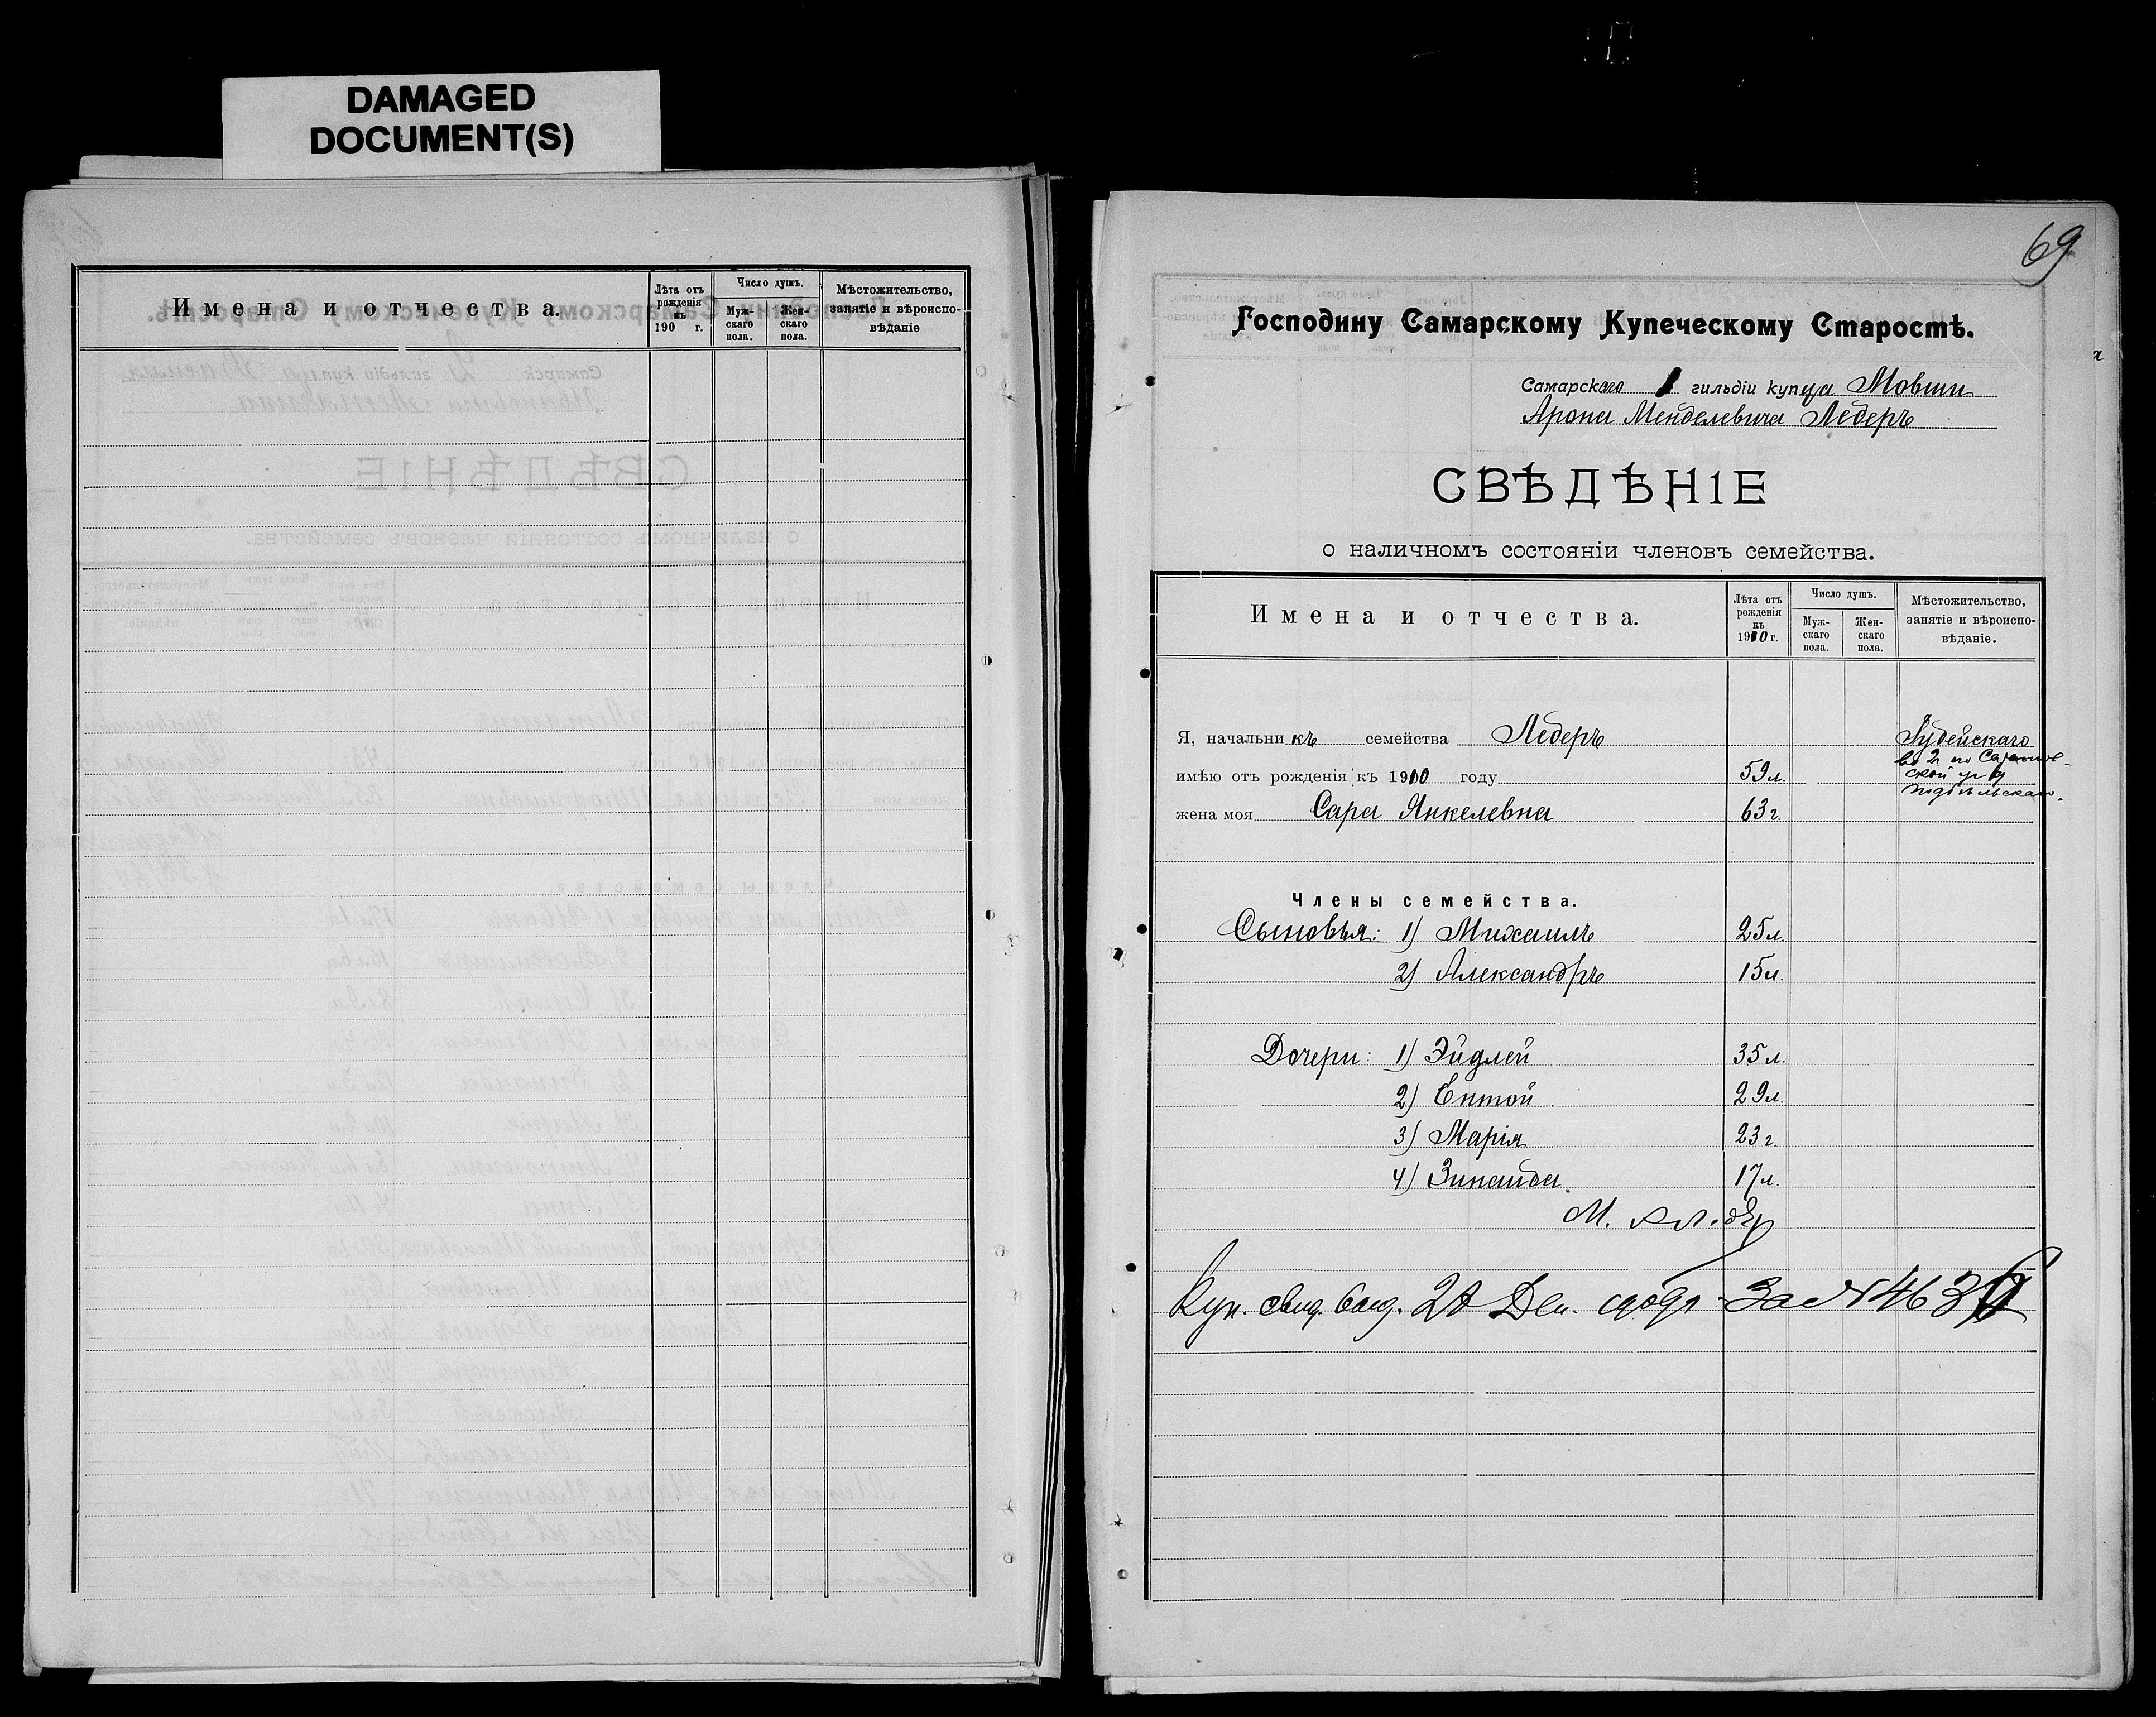 DAMAGED
DOCUMENT(S)
Имена и отчества.
Лѣта отъ рожденія къ 190 г.
Число душъ.
Мужскаго пола.
Женскаго пола.
Мѣстожительство, занятіе и вѣроисповѣданіе
69
Господину Самарскому Купеческому Старостѣ.
Самарскаго 1 гильдіи купца Мовши
Арона Менделевича Ледеръ
СВѢДѢНІЕ
о наличномъ состояніи членовъ семейства.
Имена и отчества.
Лѣта отъ рожденія къ 1910 г.
Число душъ.
Мужскаго пола.
Женскаго пола.
Мѣстожительство, занятіе и вѣроисповѣданіе.
Я, начальникъ семейства Ледеръ
Іудейскаго
имѣю отъ рожденія къ 1910 году 59 л.
во 2 ч по Саратов-
ской ул
жена моя Сара Янкелевна 63 г.
Члены семейства.
Сыновья: 1) Михаилъ 25 л.
2) Александръ 15 л.
Дочери: 1) Эйдлей 35 л.
2) Ентой 29 л.
3) Марія 23 г.
4) Зинаида 17 л.
Куп. свид. выд. 20 Дек. 1909 г За № 4636